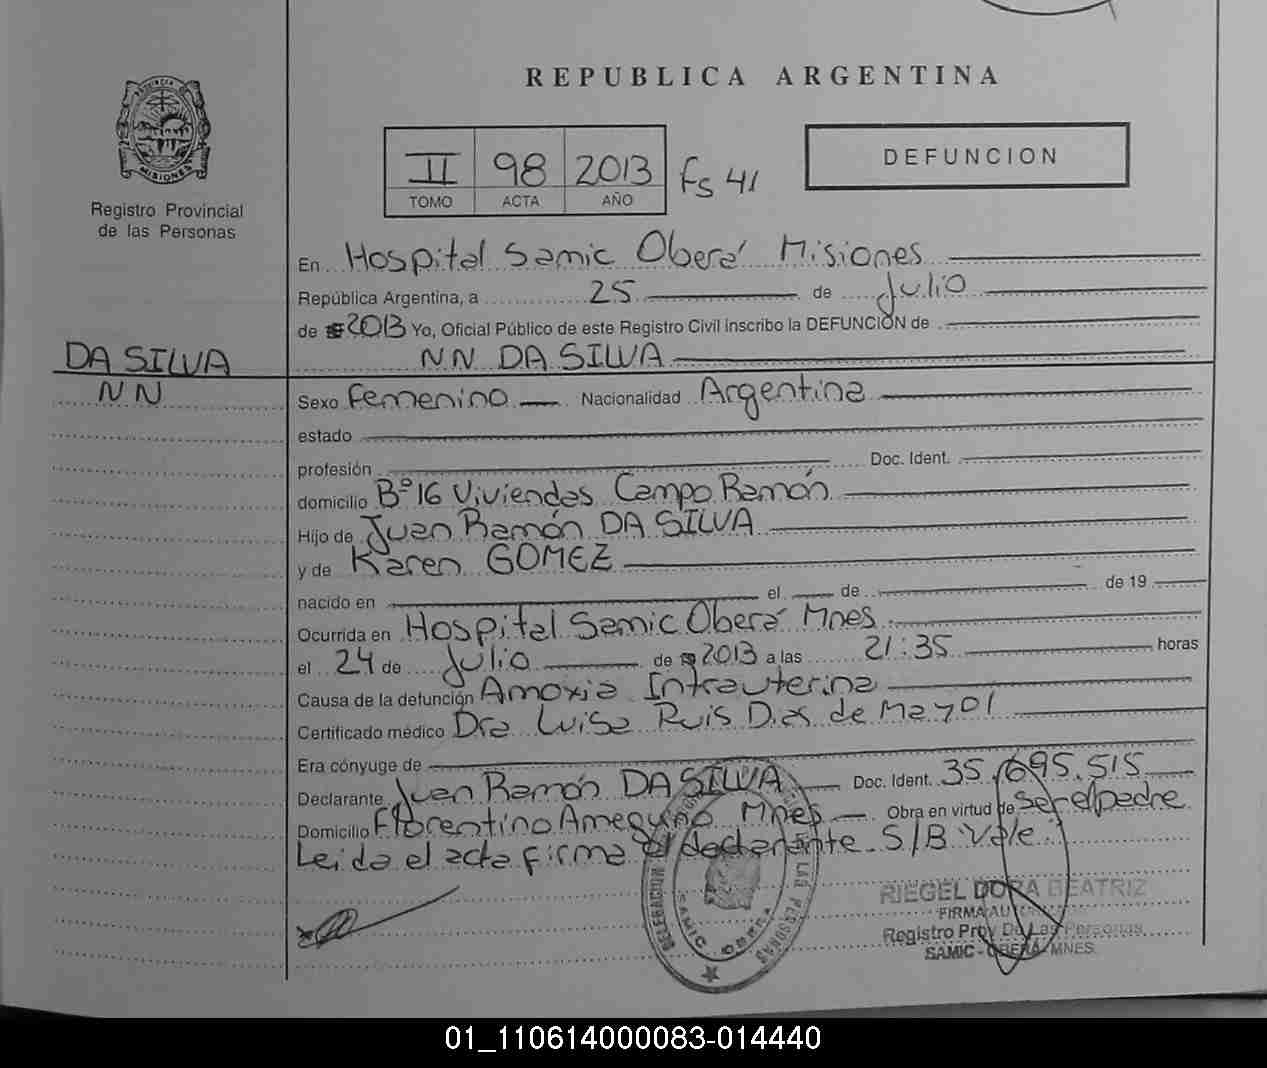 REPUBLICA ARGENTINA
PROVINCIA DE
MISIONES
Registro Provincial
de las Personas
II 98 2013 Fs 41
TOMO ACTA AÑO
DEFUNCION
En Hospital Samic Oberá Misiones
República Argentina, a 25 de Julio
de 2013 Yo, Oficial Público de este Registro Civil inscribo la DEFUNCIÓN de
NN DA SILVA
DA SILVA
NN
Sexo Femenino Nacionalidad Argentina
estado
profesión Doc. Ident.
domicilio Bº 16 Viviendas Campo Ramón
Hijo de Juan Ramón DA SILVA
y de Karen GOMEZ
nacido en el de de 19
Ocurrida en Hospital Samic Oberá Mnes
el 24 de Julio de 2013 a las 21:35 horas
Causa de la defunción Amoxia Intrauterina
Certificado médico Dra Luisa Ruis Dias de Mayol
Era cónyuge de
Declarante Juan Ramón DA SILVA Doc. Ident. 35.695.515
Domicilio Florentino Ameguino Mnes Obra en virtud de ser el padre
Leida el acta firma el declarante S/B Vale
DELEGACION LAS PERSONAS
SAMIC OBERA
RIEGEL DORA BEATRIZ
FIRMA AUTORIZADA
Registro Prov De Las Personas
SAMIC - OBERA - MNES.
01_110614000083-014440